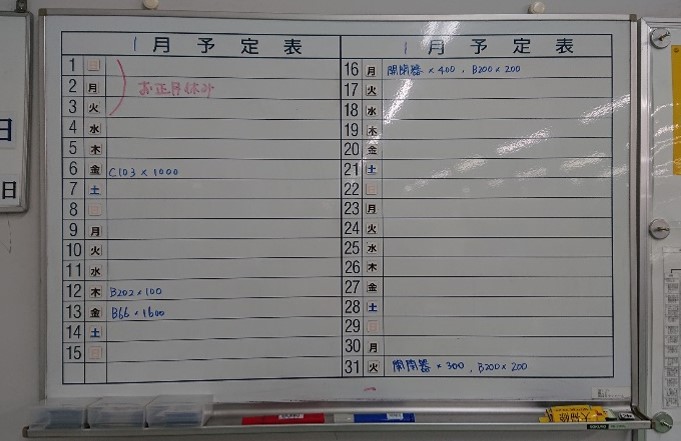 1月予定表
1 日
2 月 お正月休み
3 火
4 水
5 木
6 金 C103×1000
7 土
8 日
9 月
10 火
11 水
12 木 B202×100
13 金 B66×1600
14 土
15 日
1月予定表
16 月 開閉器×400, B200×200
17 火
18 水
19 木
20 金
21 土
22 日
23 月
24 火
25 水
26 木
27 金
28 土
29 日
30 月
31 火 開閉器×300, B200×200
日
日